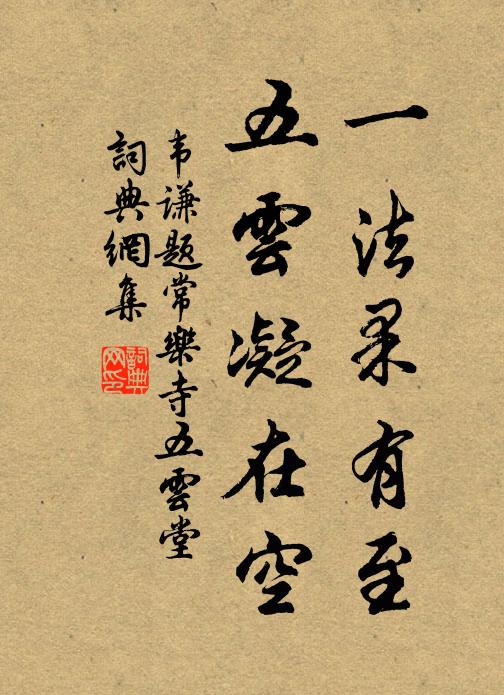 一法界有至
五雲凝在空
韦谦题常樂寺五雲堂
詞典網集
詞典网印